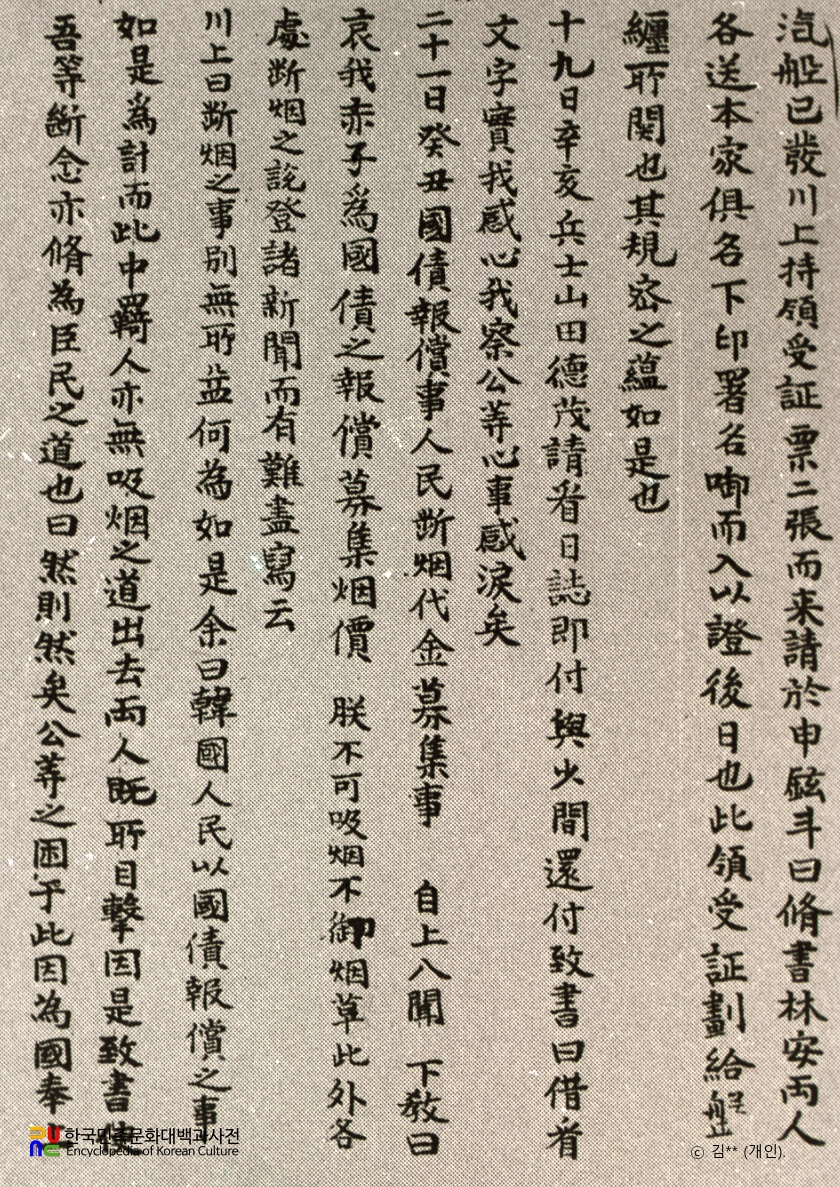 汽船已發川上持領受証票二張而来請於申鉉斗曰脩書林安両人
各送本家俱名下印署名啣而入以證後日也此領受証劃給盤
纏所関也其規密之蘊如是也
十九日辛亥兵士山田德茂請看日誌即付與少間還付致書曰借看
文字實我感心我察公等心事感淚矣
二十一日癸丑國債報償事人民断烟代金募集事 自上入聞 下敎曰
哀我赤子爲國債之報償募集烟價 朕不可吸烟不御烟草此外各
處断烟之説登諸新聞而有難盡寫云
川上曰断烟之事別無所益何為如是余曰韓國人民以國債報償之事
如是爲計而此中羇人亦無吸烟之道出去両人既所目擊因是致書
吾等断念亦脩為臣民之道也曰然則然矣公等之困于此因為國奉
한국민족문화대백과사전
Encyclopedia of Korean Culture
© 김** (개인).